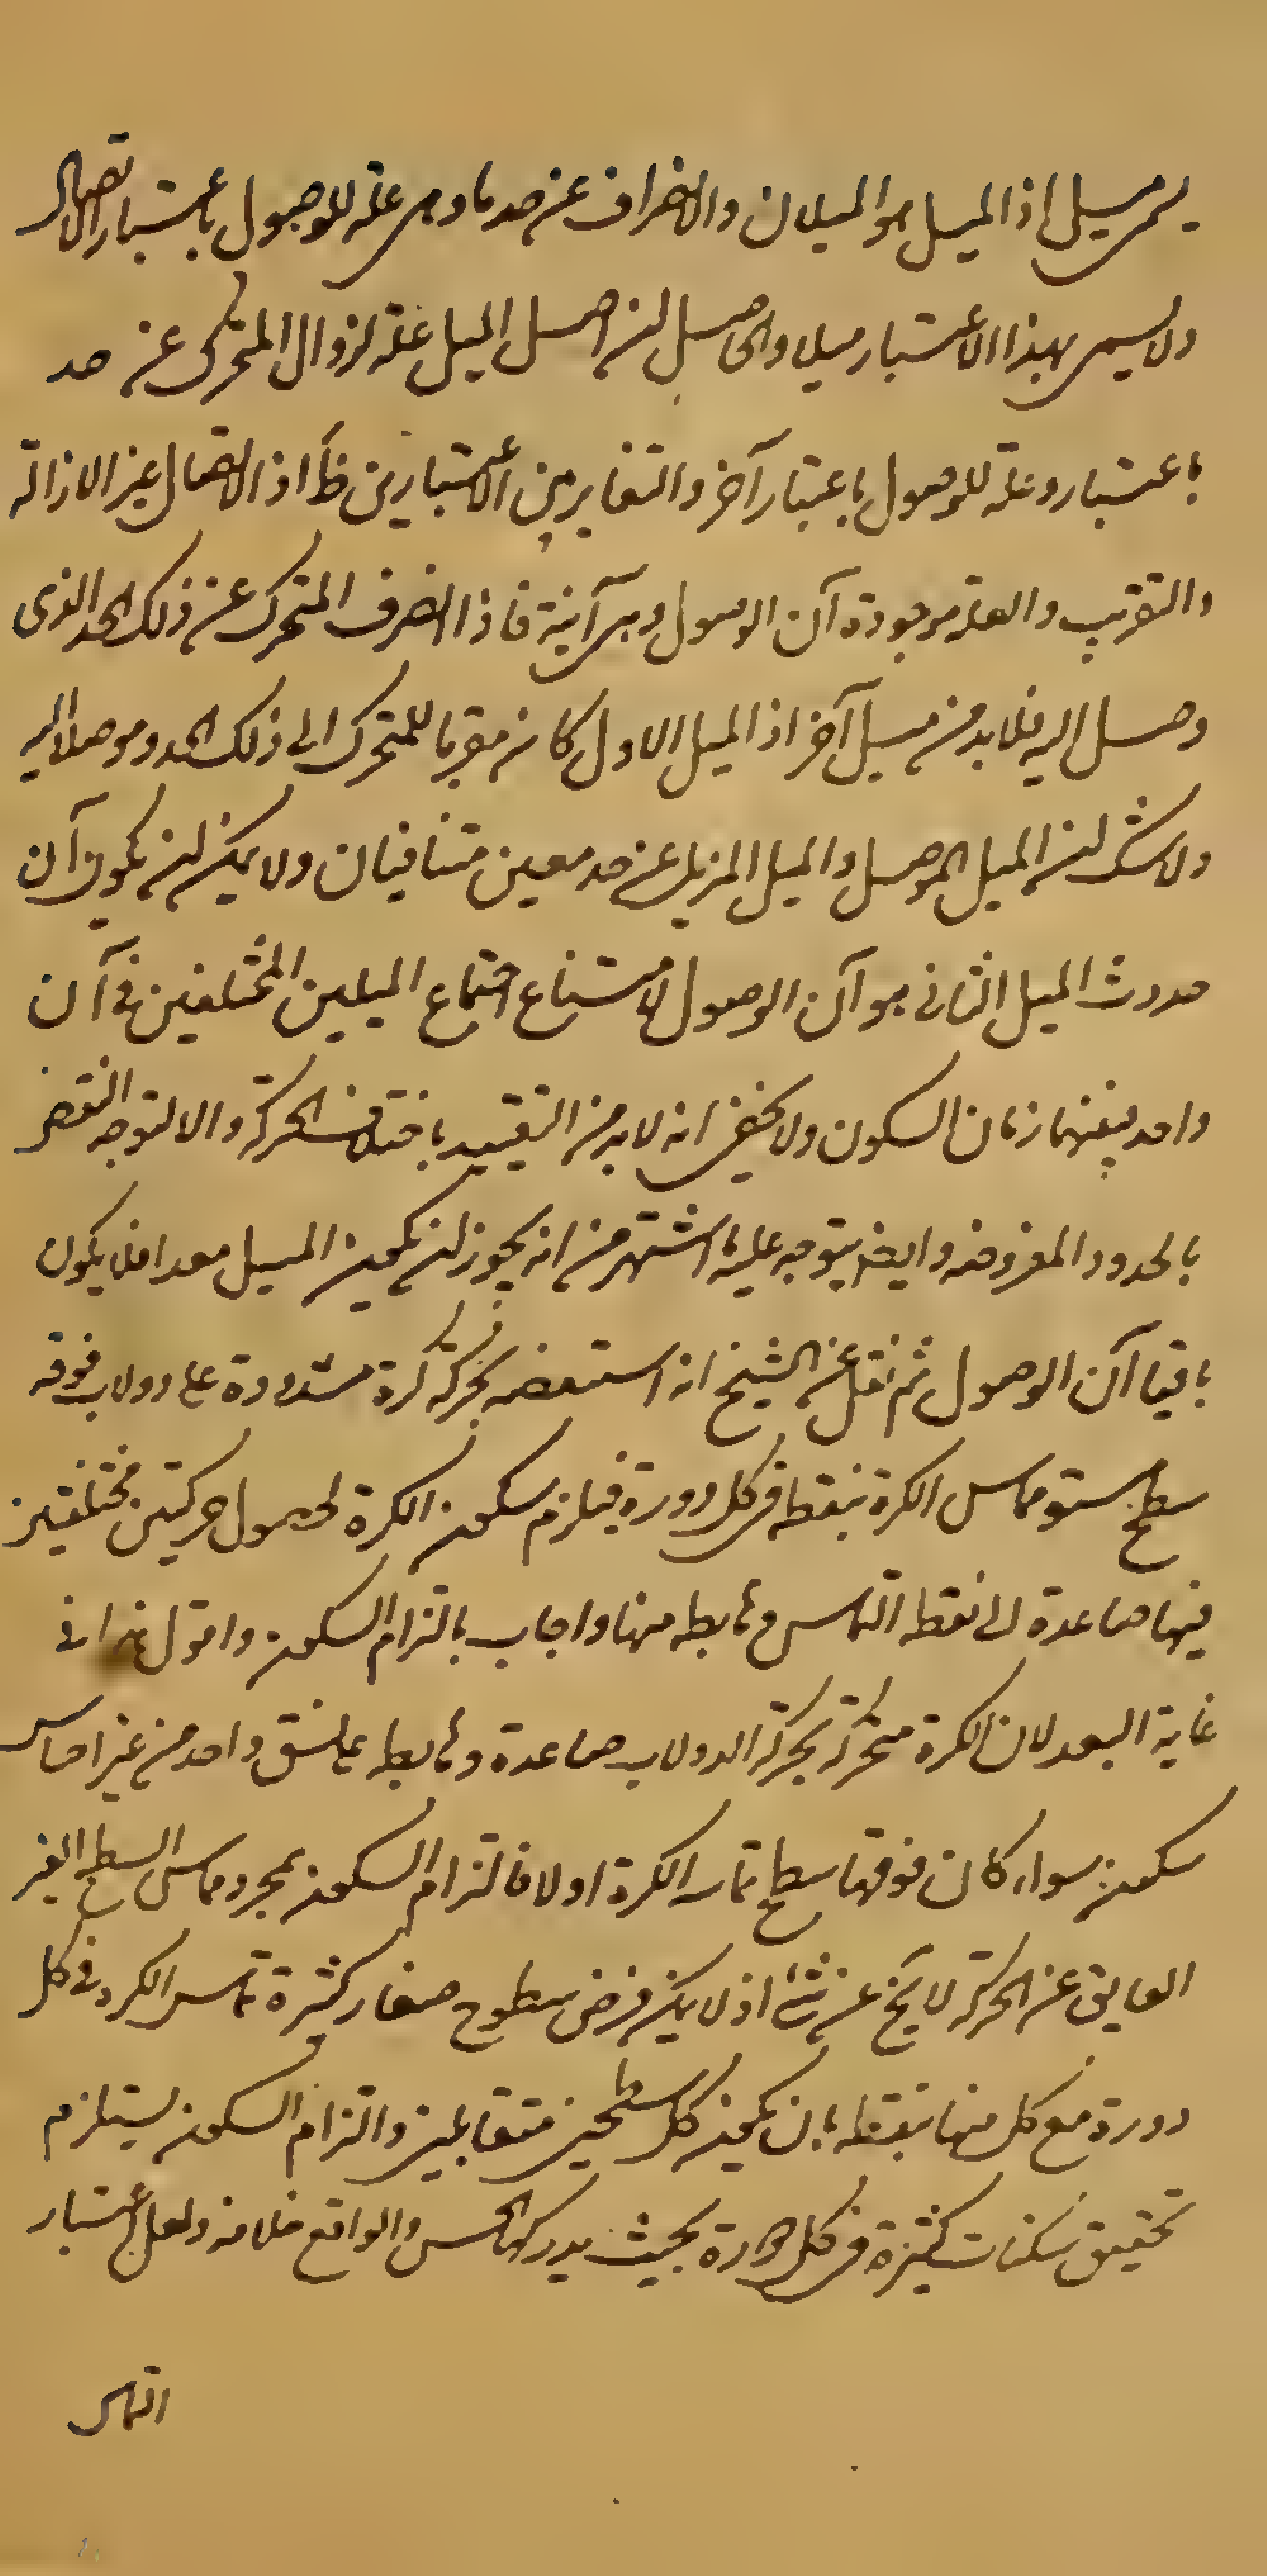 يسمى ميل اذ الميل هو الميلان والانحراف عن حد ما وهى علة للوصول باعتبار الايصال
ولا يسمى بهذا الاعتبار ميلا والحاصل ان اصل الميل علة لزوال المتحرك عن حد
باعتبار وعلة للوصول باعتبار آخر والتغاير بين الاعتبارين ظ اذ الايصال غير الازالة
والتقريب والعلة موجودة آن الوصول وهى آنية فاذا انصرف المتحرك عن ذلك الحد الذى
وصل اليه فلا بد من ميل آخر اذ الميل الاول كان مقربا للمتحرك الى ذلك الحد وموصلا اليه
ولا شك ان الميل الموصل والميل المزيل عن حد معين متنافيان ولا يمكن ان يكون آن
حدوث الميل الثانى هو آن الوصول لامتناع اجتماع الميلين المختلفين فى آن
واحد فبينهما زمان السكون ولا يخفى انه لا بد من التقييد باختلاف الحركة والا لتوجه النقض
بالحدود المفروضه وايضا يتوجه عليه ما اشتهر من انه يجوز ان يكون الميل معدا فلا يكون
باقيا آن الوصول ثم نقل عن الشيخ انه استنقضه بحركة كرة مشدودة على دولاب فوقه
سطح مستو مماس الكرة بنقطه فى كل دورة فيلزم سكون الكرة لحصول حركتين مختلفتين
فيها صاعدة الى نقطه التماس وهابطه منها واجاب بالتزام السكون واقول هذا فى
غاية البعد لان الكرة متحركة بحركة الدولاب صاعدة وهابطه على نسق واحد من غير احساس
سكون سواء كان فوقها سطح تماسه الكرة اولا فالتزام السكون بمجرد مماس السطح الغير
العايق عن الحركة لا يخ عن شئ اذ لا يمكن فرض سطوح صغار كثيرة تماس الكرة فى كل
دورة مع كل منها بنقطه بان يكون كل سطحين متقابلين والتزام السكون يستلزم
تحقيق سكنات كثيرة فى كل دورة بحيث يدركها الحس والواقع خلافه ولعل اعتبار
التماس